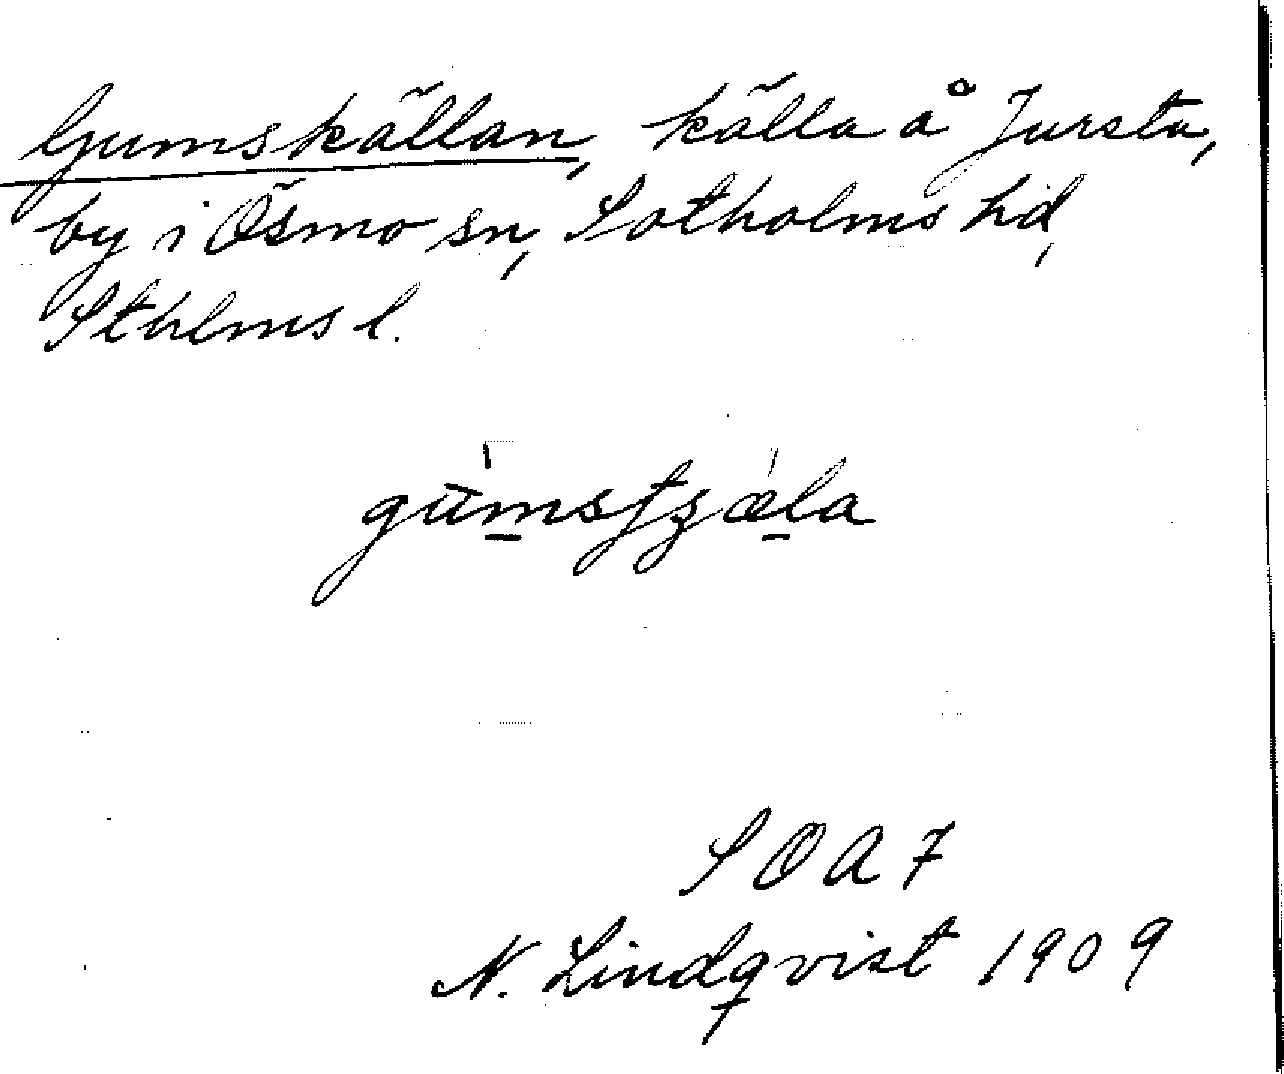 Gumskällan, källa å Jursta,
by i Ösmo sn, Sotholms hd,
Sthlms l.
gu̅mstʂæla
SOA 7
N. Lindqvist 1909